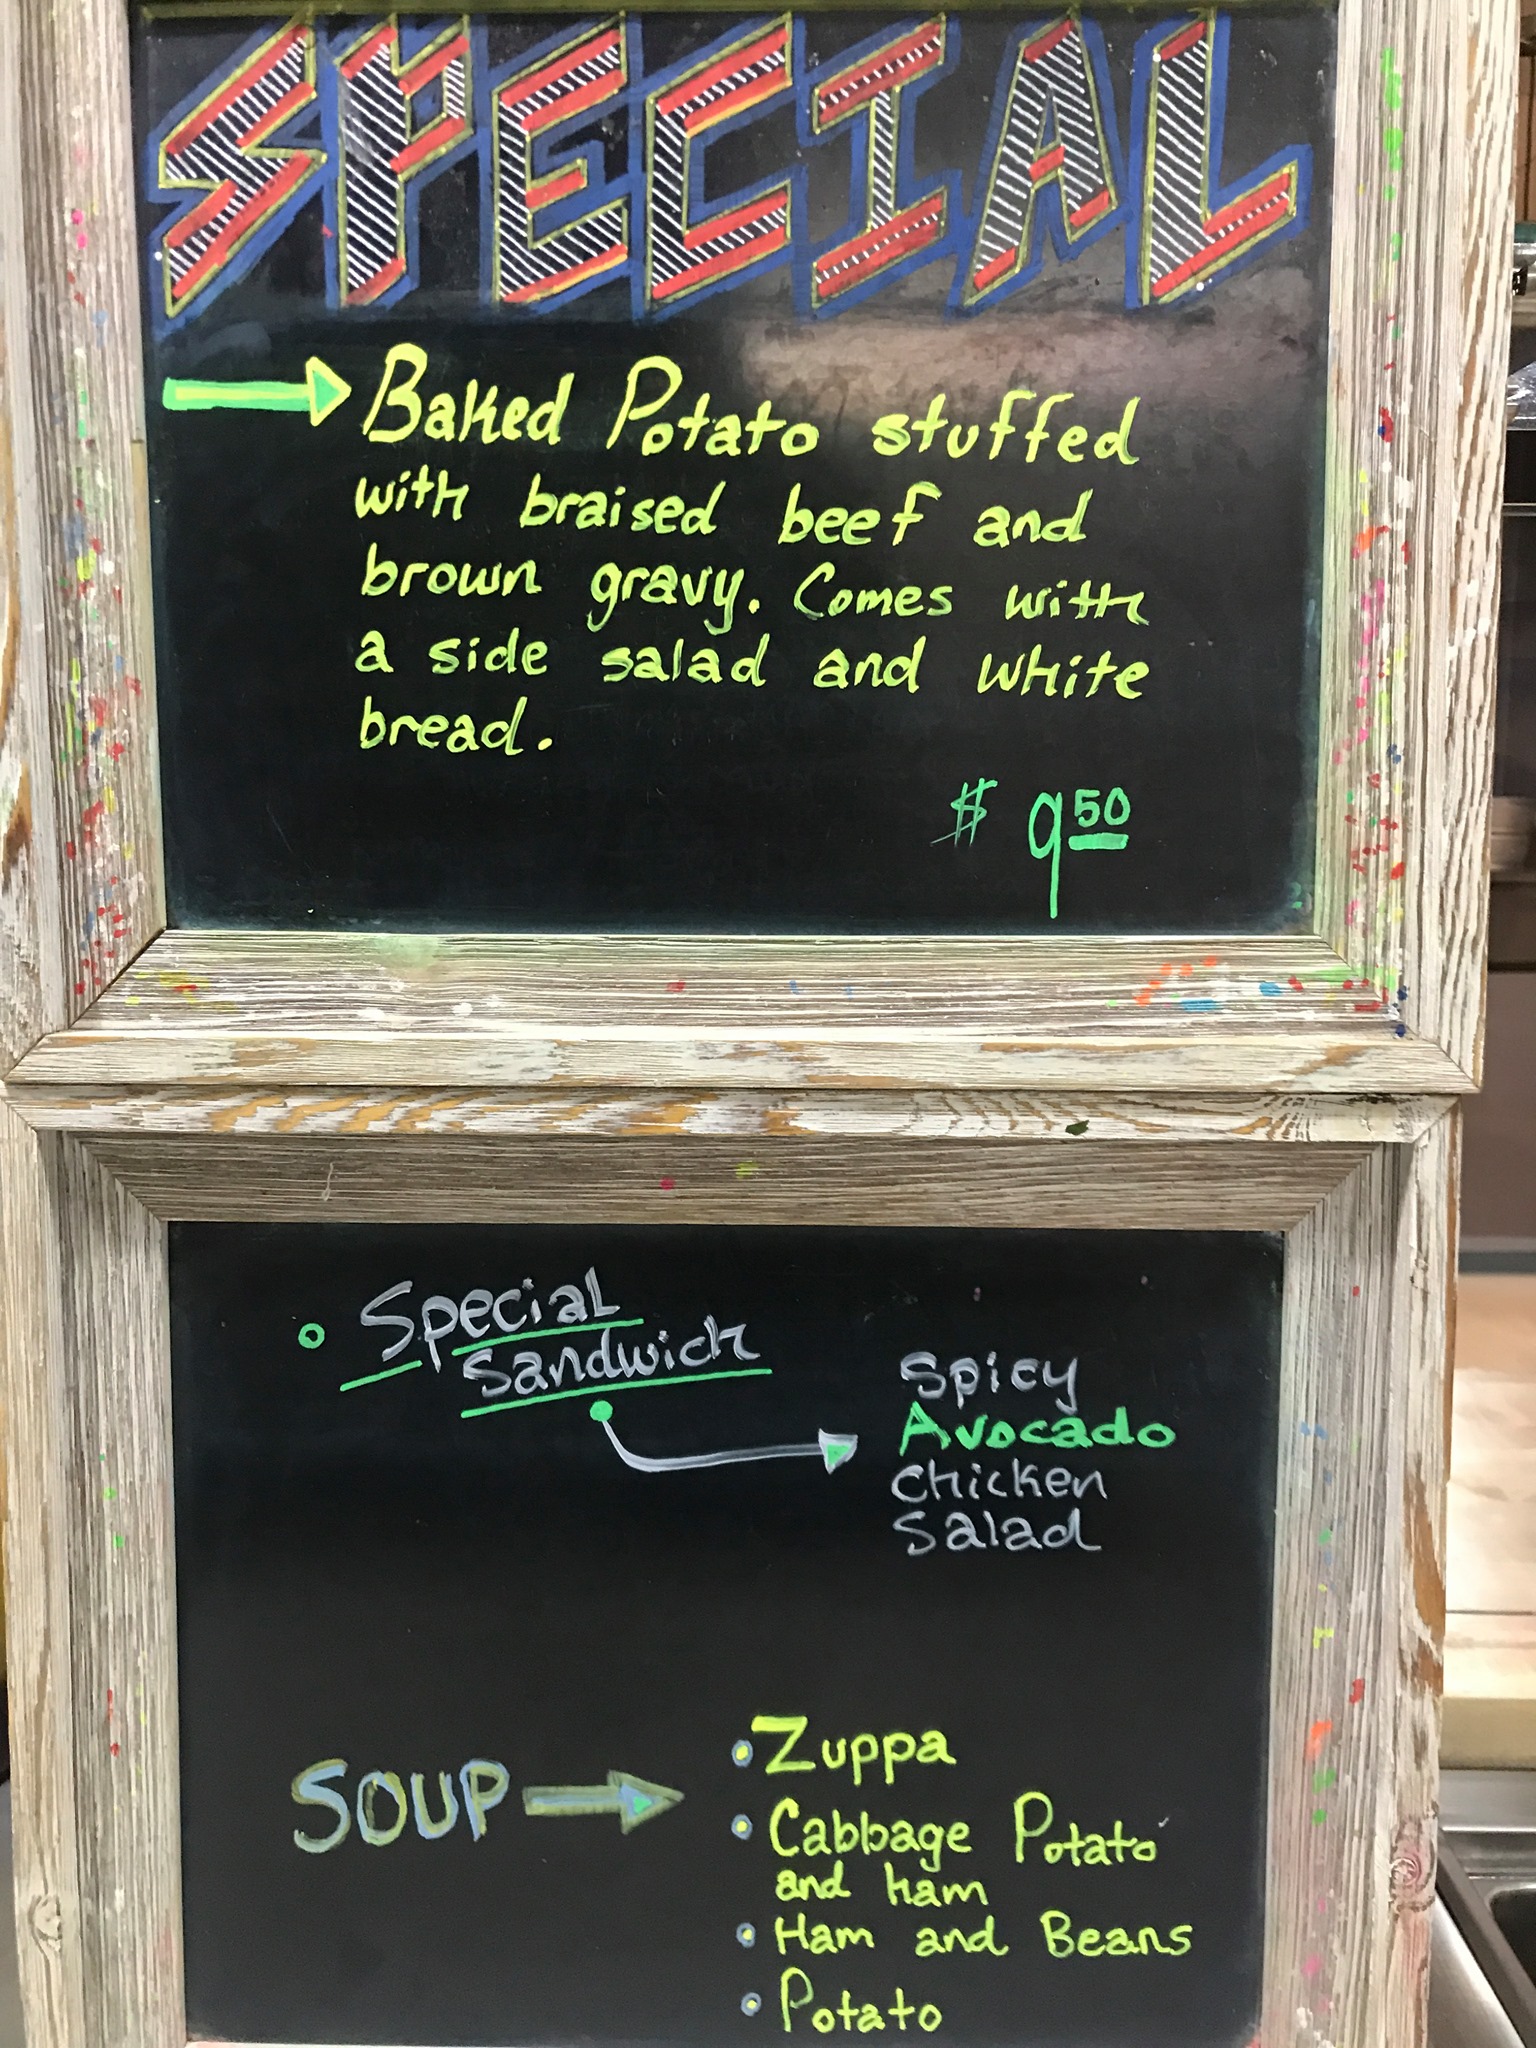 SPECIAL
Baked Potato stuffed
with braised beef and
brown gravy. Comes with
a side salad and white
bread.
$ 9 50
Special
Sandwich
Spicy
Avocado
Chicken
Salad
SOUP
Zuppa
Cabbage Potato
and ham
Ham and Beans
Potato